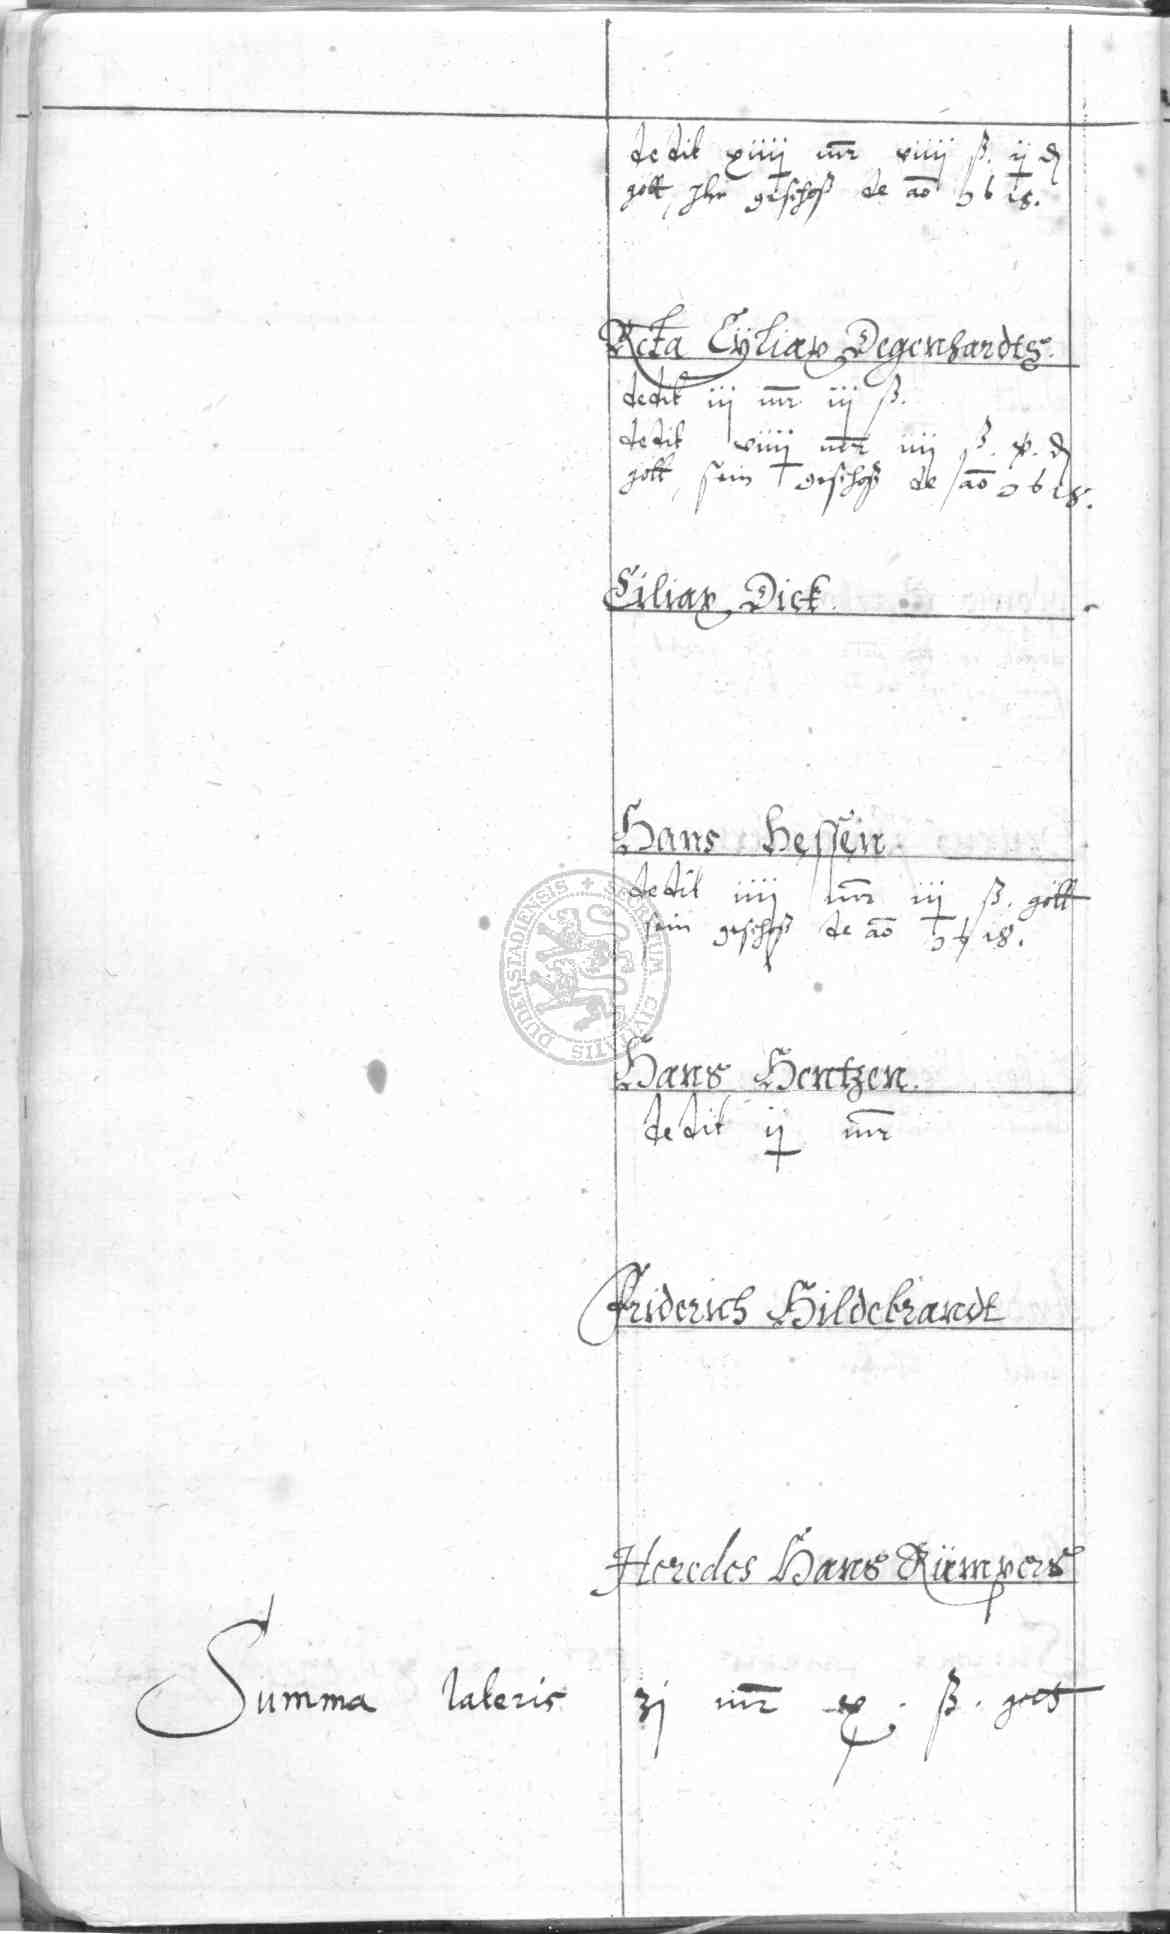 dedit xiiij mr viiij ß. ij ₰
gött, ihr geschoß de ao 1618.
Relicta Ciliax Degenhardts.
dedit iij mr iij ß.
dedit viiij mr iiij ß. x. ₰
gött, sein geschoß de ao 1618.
Ciliax Dick.
Hans Hessen
dedit iiij mr iij ß. gött
sein geschoß de ao 1618.
Hans Hentzen.
dedit ij mr
Friderich Hildebrandt
Heredes Hans
Summa lateris mr ß. gött
SECRETUM CIVITATIS DUDERSTADIENSIS